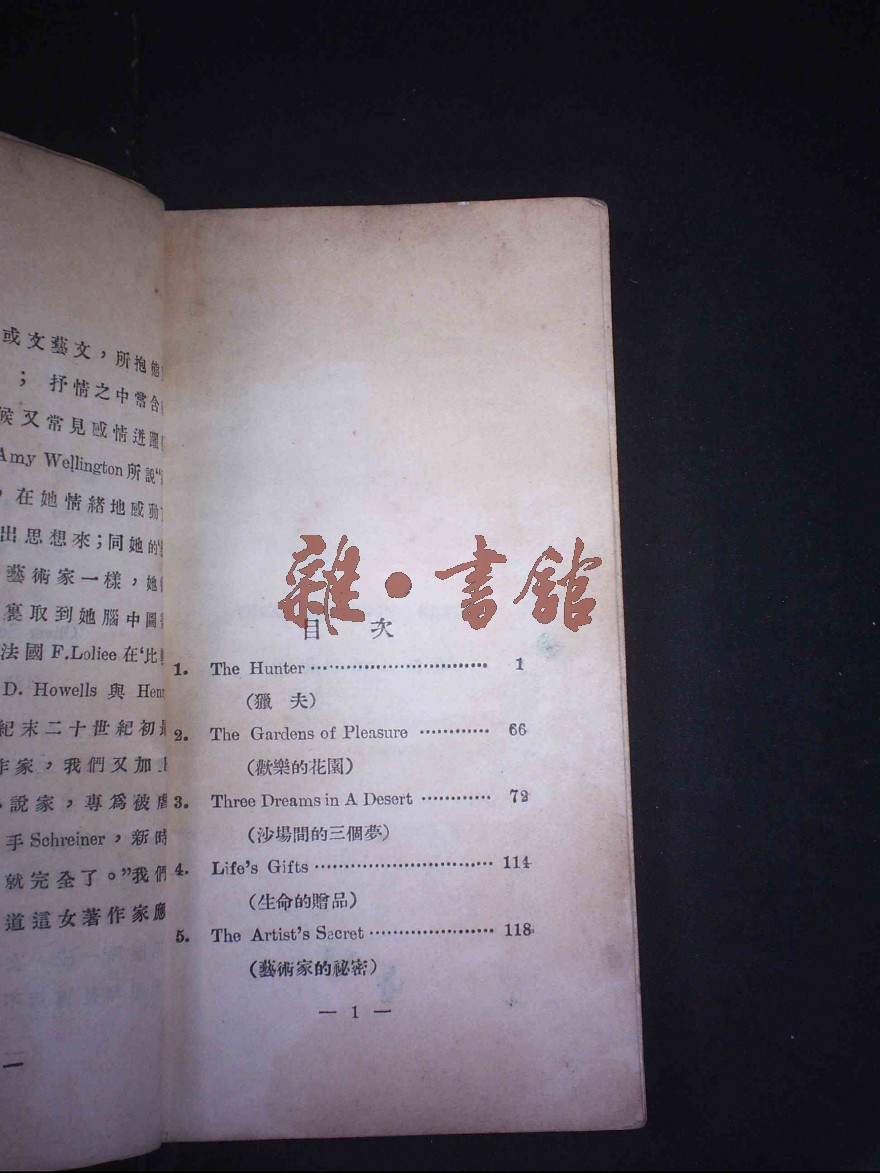 或文藝文，所抱他
；抒情之中常含
候又常見感情迸躍
Amy Wellington所說“
，在她情緒地感動
出思想來；同她的
藝術家一樣，她
裏取到她腦中圖
法國F.Loliee在‘比
D. Howells 與 Henr
紀末二十世紀初最
作家，我們又加上
說家，專爲被虐
手Schreiner，新時
就完全了。”我們
道這女著作家應
—
雜·書館
目 次
1. The Hunter ⋯⋯⋯⋯⋯⋯⋯⋯⋯⋯ 1
（獵 夫）
2. The Gardens of Pleasure ⋯⋯⋯⋯ 66
（歡樂的花園）
3. Three Dreams in A Desert ⋯⋯⋯⋯ 72
（沙場間的三個夢）
4. Life's Gifts ⋯⋯⋯⋯⋯⋯⋯⋯⋯⋯ 114
（生命的贈品）
5. The Artist's Secret ⋯⋯⋯⋯⋯⋯⋯ 118
（藝術家的祕密）
— 1 —